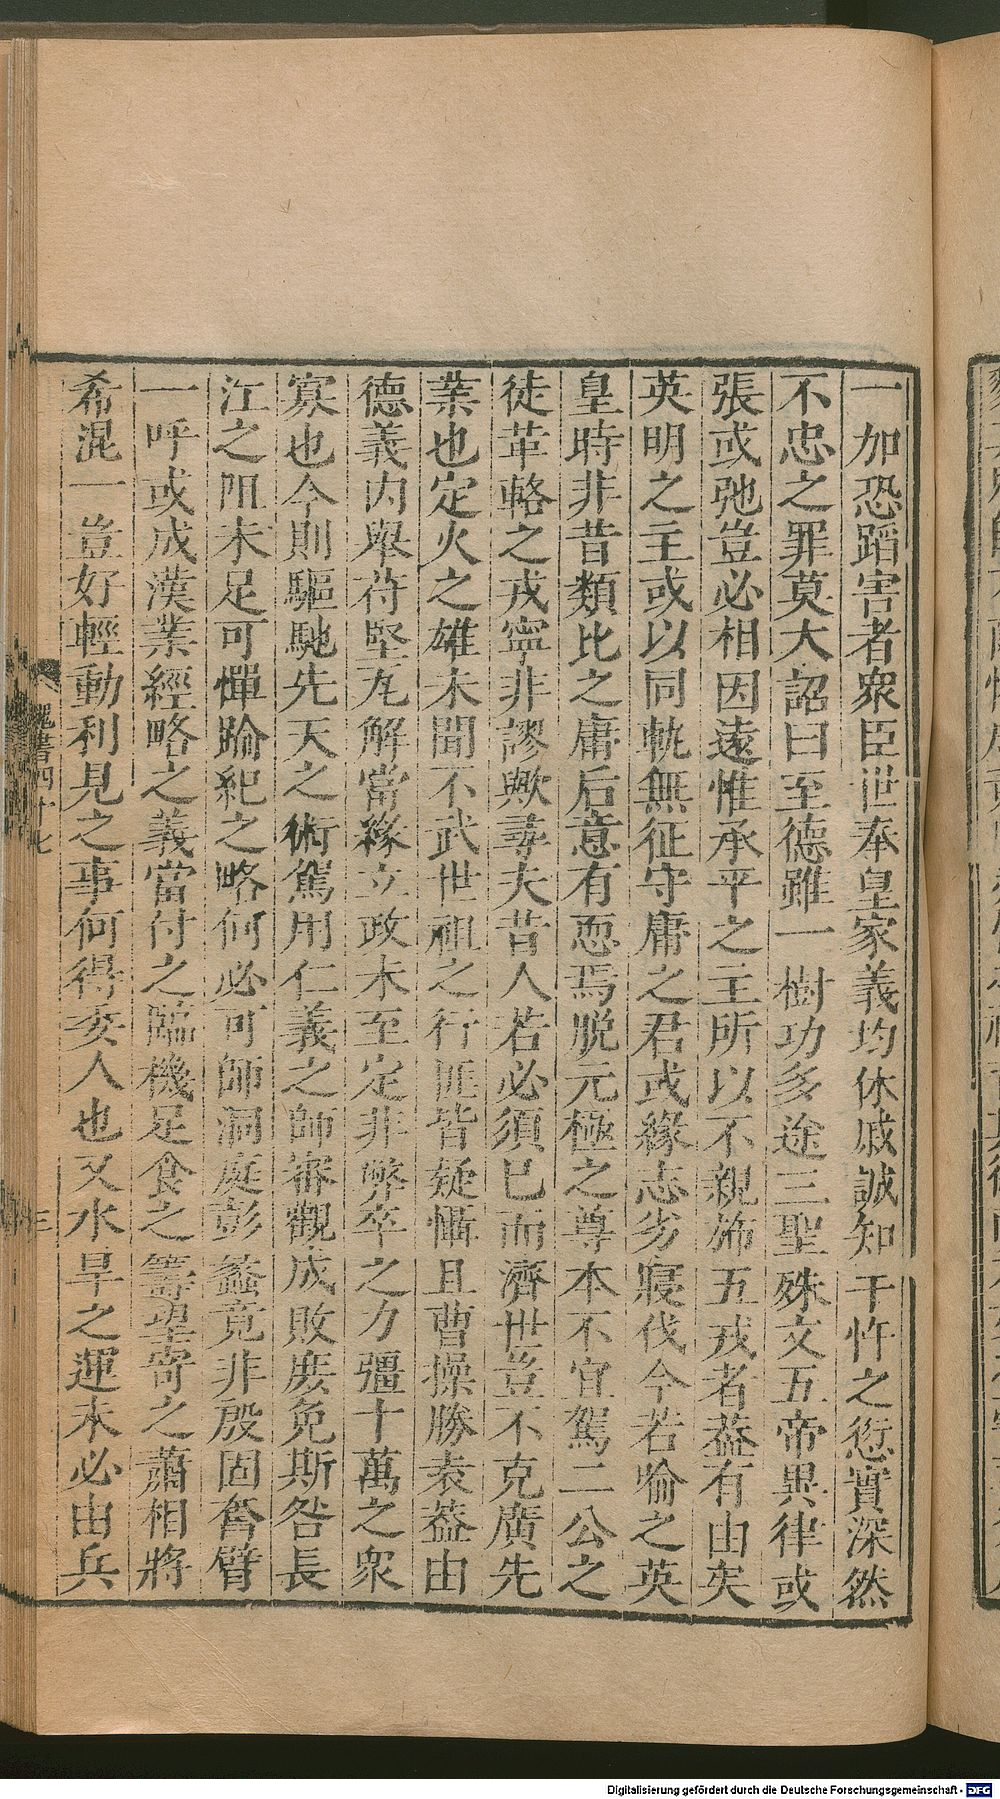 一加恐蹈害者衆臣世奉皇家義均休戚誠知干忤之愆實深然
不忠之罪莫大詔曰至德雖一樹功多途三聖殊文五帝異律或
張或弛豈必相因遠惟承平之主所以不親旆五戎者葢有由矣
英明之主或以同軌無征守庸之君或緣志劣寢伐今若喻之英
皇時非昔類比之庸后意有恧焉脱元極之尊本不宜駕二公之
徒革輅之戎寧非謬歟尋夫昔人若必須已而濟世豈不克廣先
業也定火之雄未聞不武世祖之行匪皆疑懾且曹操勝袁葢由
德義内舉苻堅瓦解當緣立政未至定非弊卒之力彊十萬之衆
寡也今則驅馳先天之術駕用仁義之師審觀成敗庻免斯咎長
江之阻未足可憚踰紀之略何必可師洞庭彭蠡竟非殷固奮臂
一呼或成漢業經略之義當付之臨機足食之籌望寄之蕭相將
希混一豈好輕動利見之事何得委人也又水旱之運未必由兵
魏書四十七
三
Digitalisierung gefördert durch die Deutsche Forschungsgemeinschaft - DFG